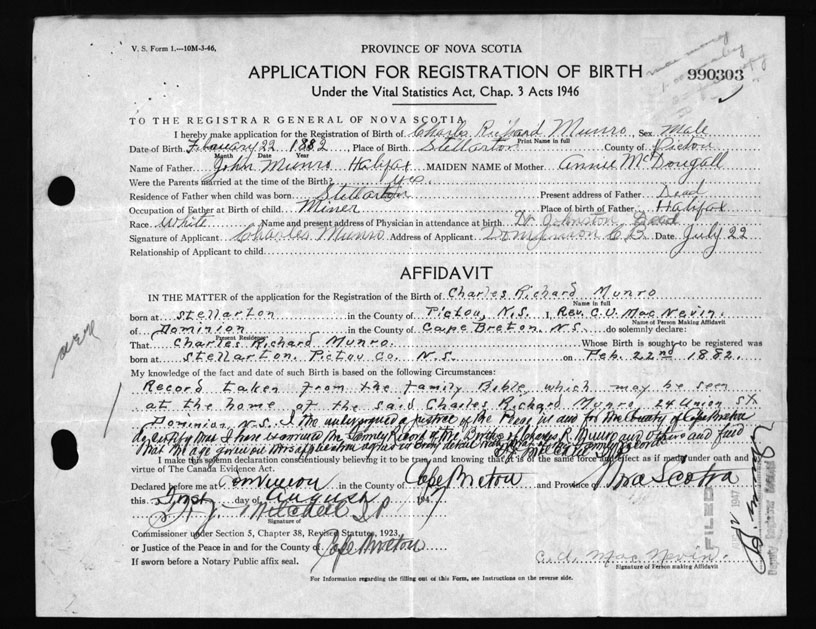 V. S. Form 1.—10M-3-46.
PROVINCE OF NOVA SCOTIA
APPLICATION FOR REGISTRATION OF BIRTH
990303
Under the Vital Statistics Act, Chap. 3 Acts 1946
TO THE REGISTRAR GENERAL OF NOVA SCOTIA
I hereby make application for the Registration of Birth of Charles Richard Munro, Sex Male
Print Name in full
Date of Birth February 22 1882, Place of Birth Stellarton County of Pictou
Month Date Year
Name of Father John Munro Halifax MAIDEN NAME of Mother Annie McDougall
Were the Parents married at the time of the Birth? yes.
Residence of Father when child was born Stellarton Present address of Father Dead
Occupation of Father at Birth of child Miner Place of birth of Father Halifax
Race White Name and present address of Physician in attendance at birth Dr Johnston, Dead
Signature of Applicant Charles Munro Address of Applicant Dominion C.B. Date July 22
Relationship of Applicant to child
AFFIDAVIT
IN THE MATTER of the application for the Registration of the Birth of Charles Richard Munro
Name in full
born at Stellarton in the County of Pictou, N.S. I, Rev. C.D. MacNevin.
Name of Person Making Affidavit
of Dominion in the County of Cape Breton. N.S. do solemnly declare:
Present Residence
That Charles Richard Munro. Whose Birth is sought to be registered was
born at Stellarton. Pictou Co. N.S. on Feb. 22nd 1882.
My knowledge of the fact and date of such Birth is based on the following Circumstances:
Record taken from the family Bible, which may be seen
at the home of the said Charles Richard Munro, 24 Union St
Dominion, N.S. I the undersigned a Justice of the Peace in and for the County of Cape Breton
do certify that I have examined the Family Record of the Births of Charles R. Munro and others and find
that the age given on this application agrees
I make this solemn declaration conscientiously believing it to be true, and knowing that it is of the same force and effect as if made under oath and
virtue of The Canada Evidence Act.
Declared before me at Dominion in the County of Cape Breton and Province of Nova Scotia
this First day of August 1947
Mitchell J P
Signature of
Commissioner under Section 5, Chapter 38, Revised Statutes, 1923,
or Justice of the Peace in and for the County of Cape Breton
If sworn before a Notary Public affix seal.
C. D. MacNevin.
Signature of Person making Affidavit
FILED
1947
For Information regarding the filling out of this Form, see Instructions on the reverse side.